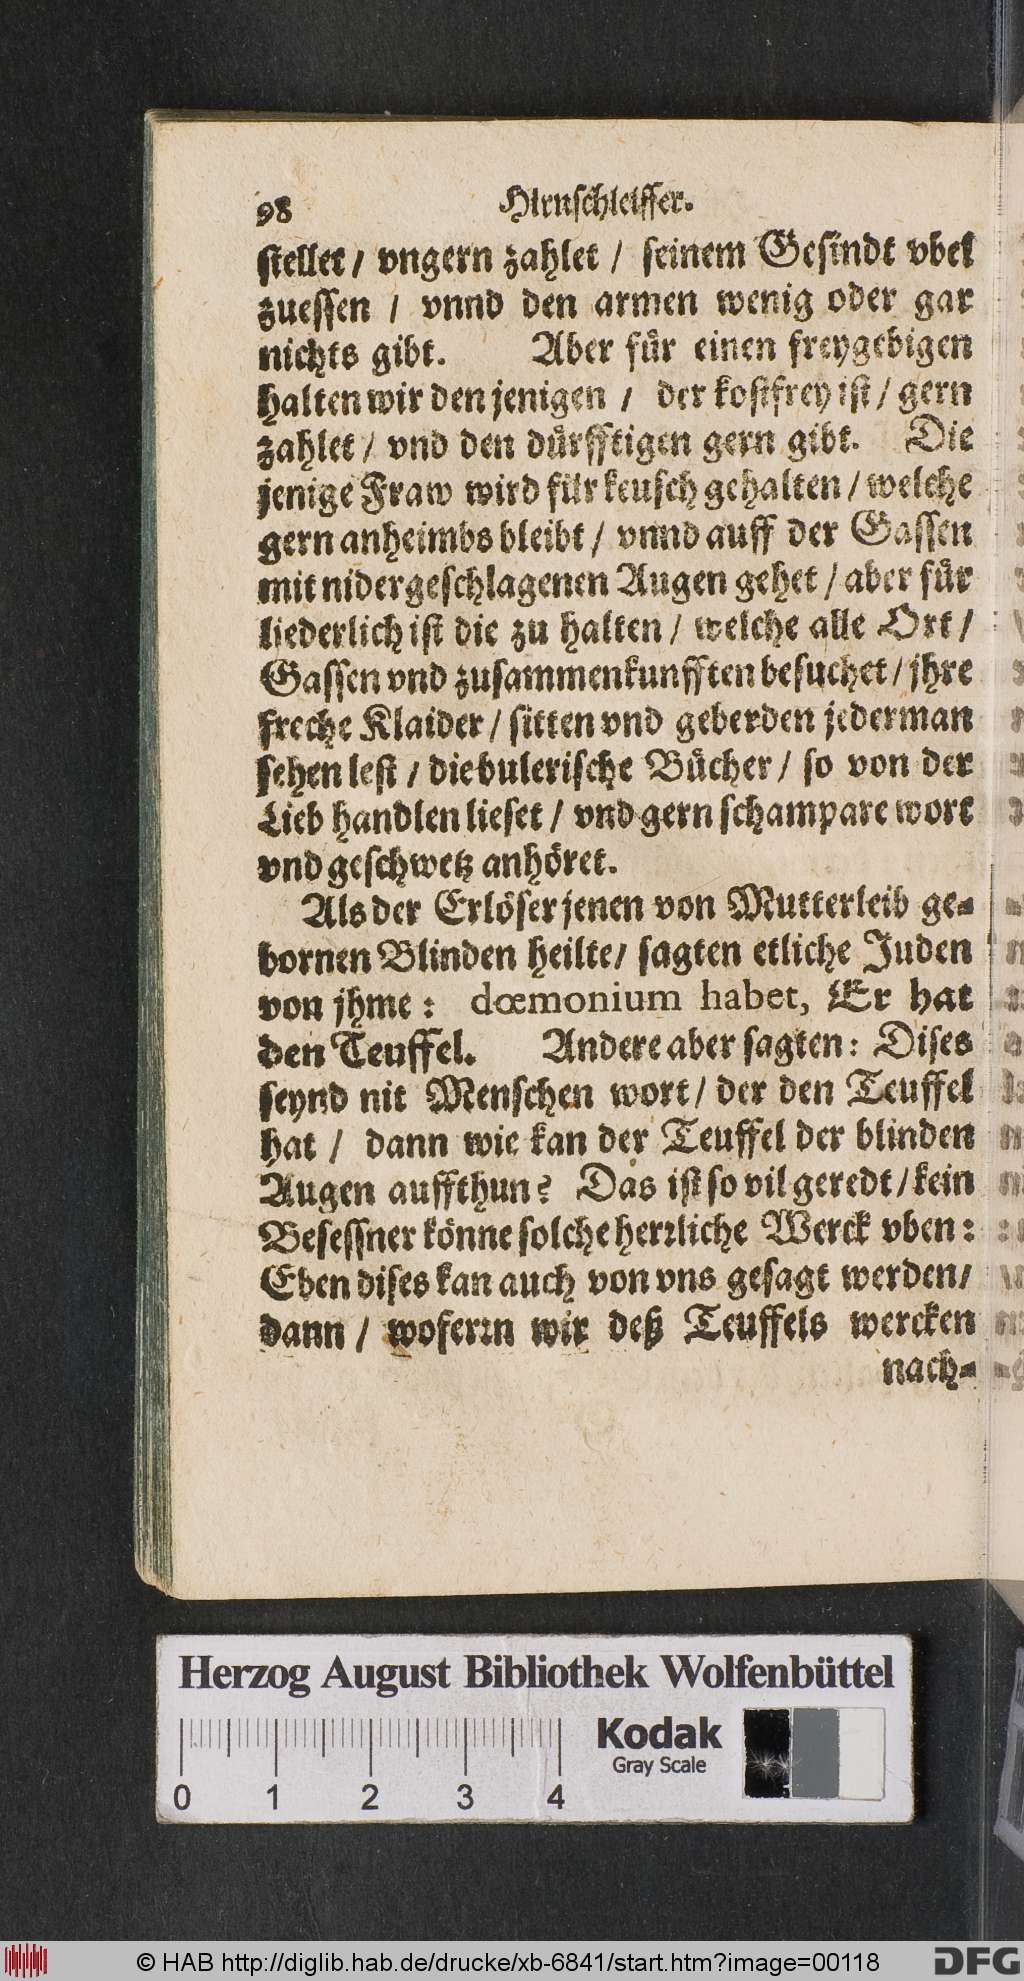 98 Hirnschleiffer.
stellet / vngern zahlet / seinem Gesindt vbel
zuessen / vnnd den armen wenig oder gar
nichts gibt. Aber für einen freygebigen
halten wir den jenigen / der kostfrey ist / gern
zahlet / vnd den dürfftigen gern gibt. Die
jenige Fraw wird für keusch gehalten / welche
gern anheimbs bleibt / vnnd auff der Gassen
mit nidergeschlagenen Augen gehet / aber für
liederlich ist die zu halten / welche alle Ort /
Gassen vnd zusammenkunfften besuchet / jhre
freche Klaider / sitten vnd geberden jederman
sehen lest / die bulerische Bücher / so von der
Lieb handlen lieset / vnd gern schampare wort
vnd geschwetz anhöret.
Als der Erlöser jenen von Mutterleib ge-
bornen Blinden heilte / sagten etliche Juden
von jhme : dœmonium habet, Er hat
den Teuffel. Andere aber sagten: Dises
seynd nit Menschen wort / der den Teuffel
hat / dann wie kan der Teuffel der blinden
Augen auffthun? Das ist so vil geredt / kein
Besessner könne solche herrliche Werck vben :
Eben dises kan auch von vns gesagt werden /
dann / woferrn wir deß Teuffels wercken
nach-
Herzog August Bibliothek Wolfenbüttel
Kodak
Gray Scale
0 1 2 3 4
© HAB http://diglib.hab.de/drucke/xb-6841/start.htm?image=00118
DFG